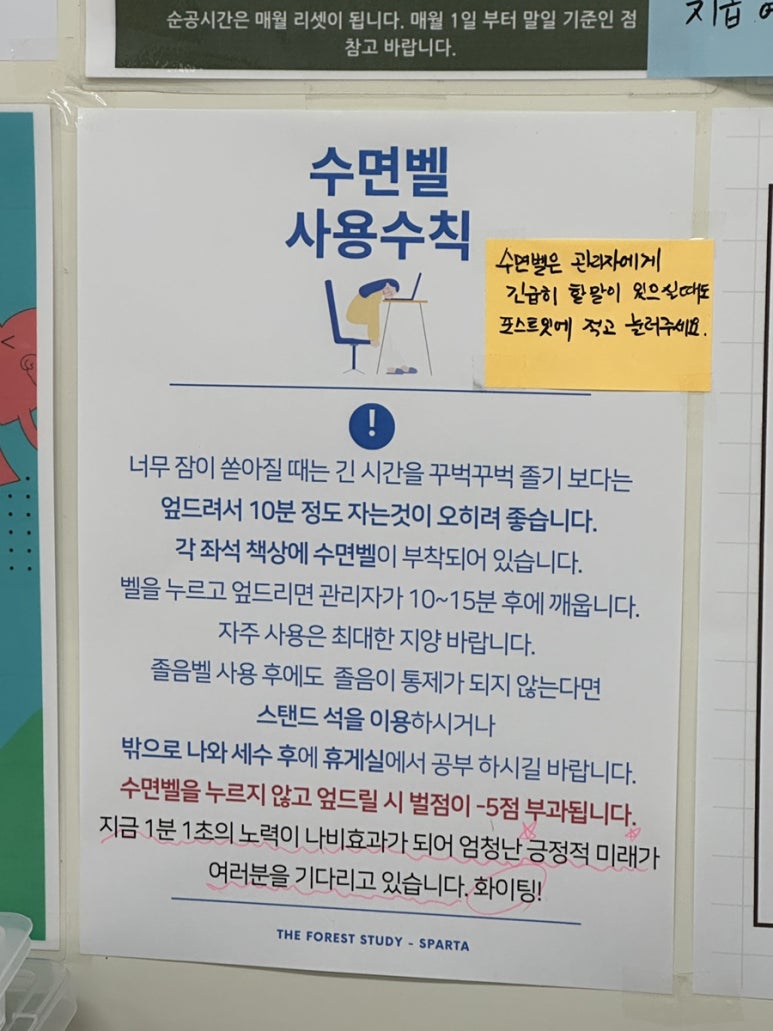 순공시간은 매월 리셋이 됩니다. 매월 1일 부터 말일 기준인 점
참고 바랍니다.
지급
수면벨
사용수칙
수면벨은 관리자에게
긴급히 할말이 있으실때도
포스트잇에 적고 눌러주세요.
!
너무 잠이 쏟아질 때는 긴 시간을 꾸벅꾸벅 졸기 보다는
엎드려서 10분 정도 자는것이 오히려 좋습니다.
각 좌석 책상에 수면벨이 부착되어 있습니다.
벨을 누르고 엎드리면 관리자가 10~15분 후에 깨웁니다.
자주 사용은 최대한 지양 바랍니다.
졸음벨 사용 후에도 졸음이 통제가 되지 않는다면
스탠드 석을 이용하시거나
밖으로 나와 세수 후에 휴게실에서 공부 하시길 바랍니다.
수면벨을 누르지 않고 엎드릴 시 벌점이 -5점 부과됩니다.
지금 1분 1초의 노력이 나비효과가 되어 엄청난 긍정적 미래가
여러분을 기다리고 있습니다. 화이팅!
THE FOREST STUDY - SPARTA